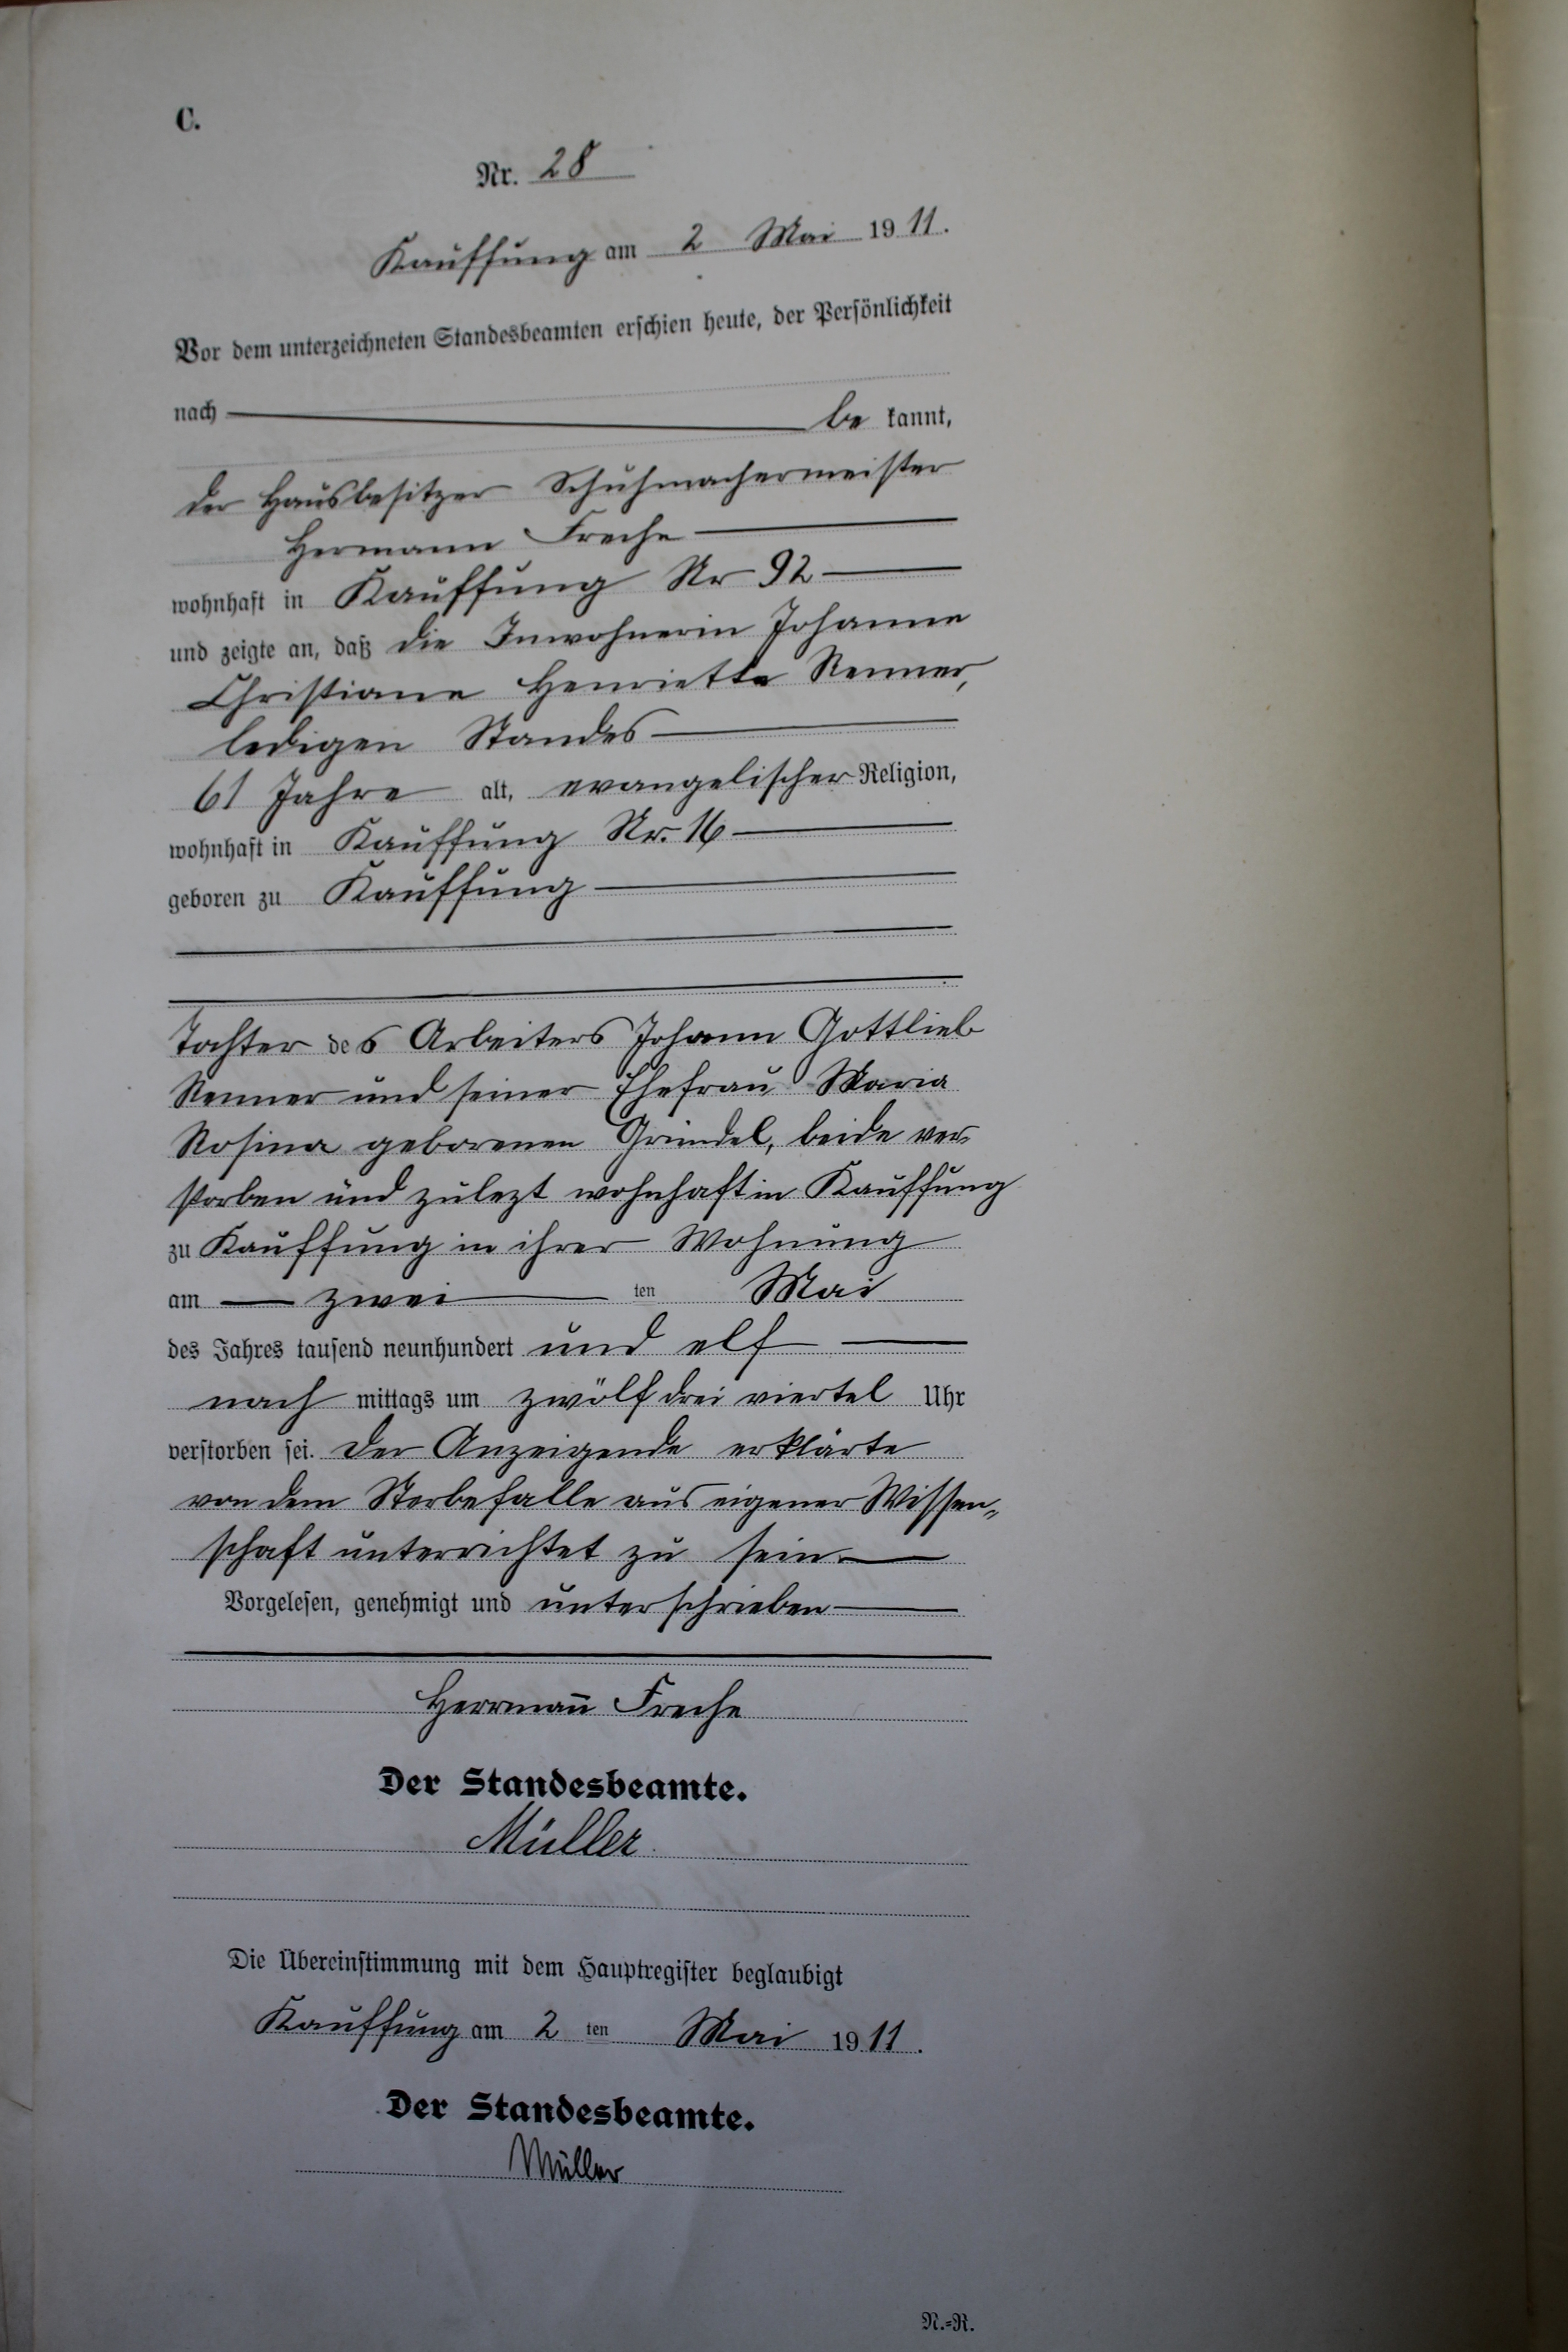 C.
Nr. 28
Kauffung am 2 Mai 1911.
Vor dem unterzeichneten Standesbeamten erschien heute, der Persönlichkeit
nach be kannt,
der Hausbesitzer Schuhmachermeister
Hermann Freche
wohnhaft in Kauffung Nr 92
und zeigte an, daß die Inwohnerin Johanne
Christiane Henriette Renner,
ledigen Standes
61 Jahre alt, evangelischer Religion,
wohnhaft in Kauffung Nr. 16
geboren zu Kauffung
Tochter des Arbeiters Johann Gottlieb
Renner und seiner Ehefrau Maria
Rosina geborenen Gründel, beide ver-
storben und zulezt wohnhaft in Kauffung
zu Kauffung in ihrer Wohnung
am zwei ten Mai
des Jahres tausend neunhundert und elf
nach mittags um zwölf drei viertel Uhr
verstorben sei. Der Anzeigende erklärte
von dem Sterbefalle aus eigener Wissen„
schaft unterrichtet zu sein.
Vorgelesen, genehmigt und unterschrieben
Herrmañ Freche
Der Standesbeamte.
Müller.
Die Übereinstimmung mit dem Hauptregister beglaubigt
Kauffung am 2 ten Mai 1911.
Der Standesbeamte.
Müller
N.=R.